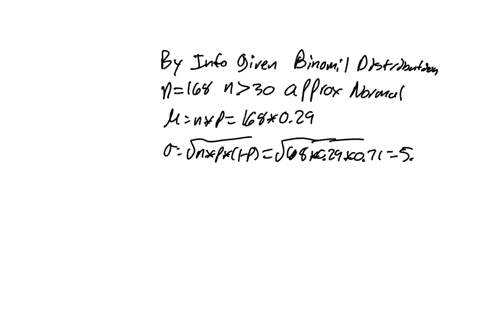 By Info Given Binomil Distribution
n=168 n>30 approx Normal
μ=n*p=168*0.29
σ=√n*p*(1-p)=√168*0.29*0.71=5.